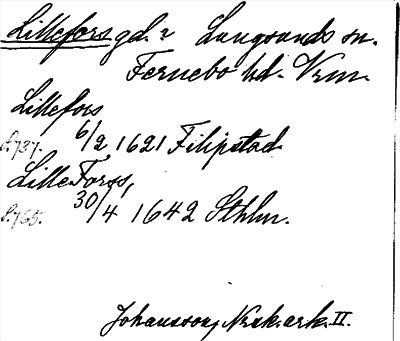 Lillefors gd. i Långsands sn.
Fernebo hd. Vrm.
Lillefors
s. 737. 6/2 1621 Filipstad
Lille Forss,
s. 765. 30/4 1642 Sthlm.
Johansson, Norsk. ark. II.